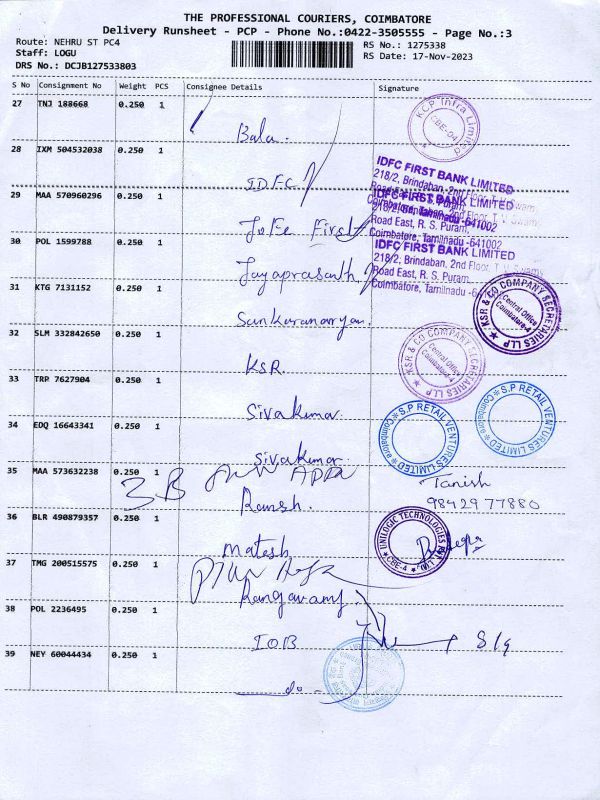 THE PROFESSIONAL COURIERS, COIMBATORE
Delivery Runsheet - PCP - Phone No.:0422-3505555 - Page No.:3
Route: NEHRU ST PC4
RS No.: 1275338
Staff: LOGU
RS Date: 17-Nov-2023
DRS No.: DCJB127533803
S No Consignment No Weight PCS Consignee Details Signature
27 TNJ 188668 0.250 1
KCP Infra Limited
CBE-04
Bala.
28 IXM 504532038 0.250 1
IDFC
IDFC FIRST BANK LIMITED
218/2, Brindaban, 2nd Floor, T.V. Swamy
29 MAA 570960296 0.250 1
IDFC FIRST BANK LIMITED
Coimbatore, Tamilnadu -641002
First
Road East, R. S. Puram,
Coimbatore, Tamilnadu -641002
30 POL 1599788 0.250 1
IDFC FIRST BANK LIMITED
218/2, Brindaban, 2nd Floor, T.V. Swamy
Jayaprasanth
Road East, R. S. Puram,
Coimbatore, Tamilnadu -6
31 KTG 7131152 0.250 1
KSR & CO COMPANY SECRETARIES LLP
Central Office
Coimbatore-4
Sankaranaryan.
32 SLM 332842650 0.250 1
KSR & CO COMPANY SECRETARIES LLP
Central Office
Coimbatore-4
KSR.
33 TRP 7627904 0.250 1
Sivakumar
S.P RETAIL VENTURES LIMITED
Coimbatore
S.P RETAIL VENTURES LIMITED
Coimbatore
34 EDQ 16643341 0.250 1
Sivakumar.
35 MAA 573632238 0.250 1
3B
Tanish
98429 77880
Ramsh.
36 BLR 490879357 0.250 1
UNILOGIC TECHNOLOGIES
CBE-4
Matesh
37 TMG 200515575 0.250 1
Rangasamy
38 POL 2236495 0.250 1
IOB
39 NEY 60044434 0.250 1
do